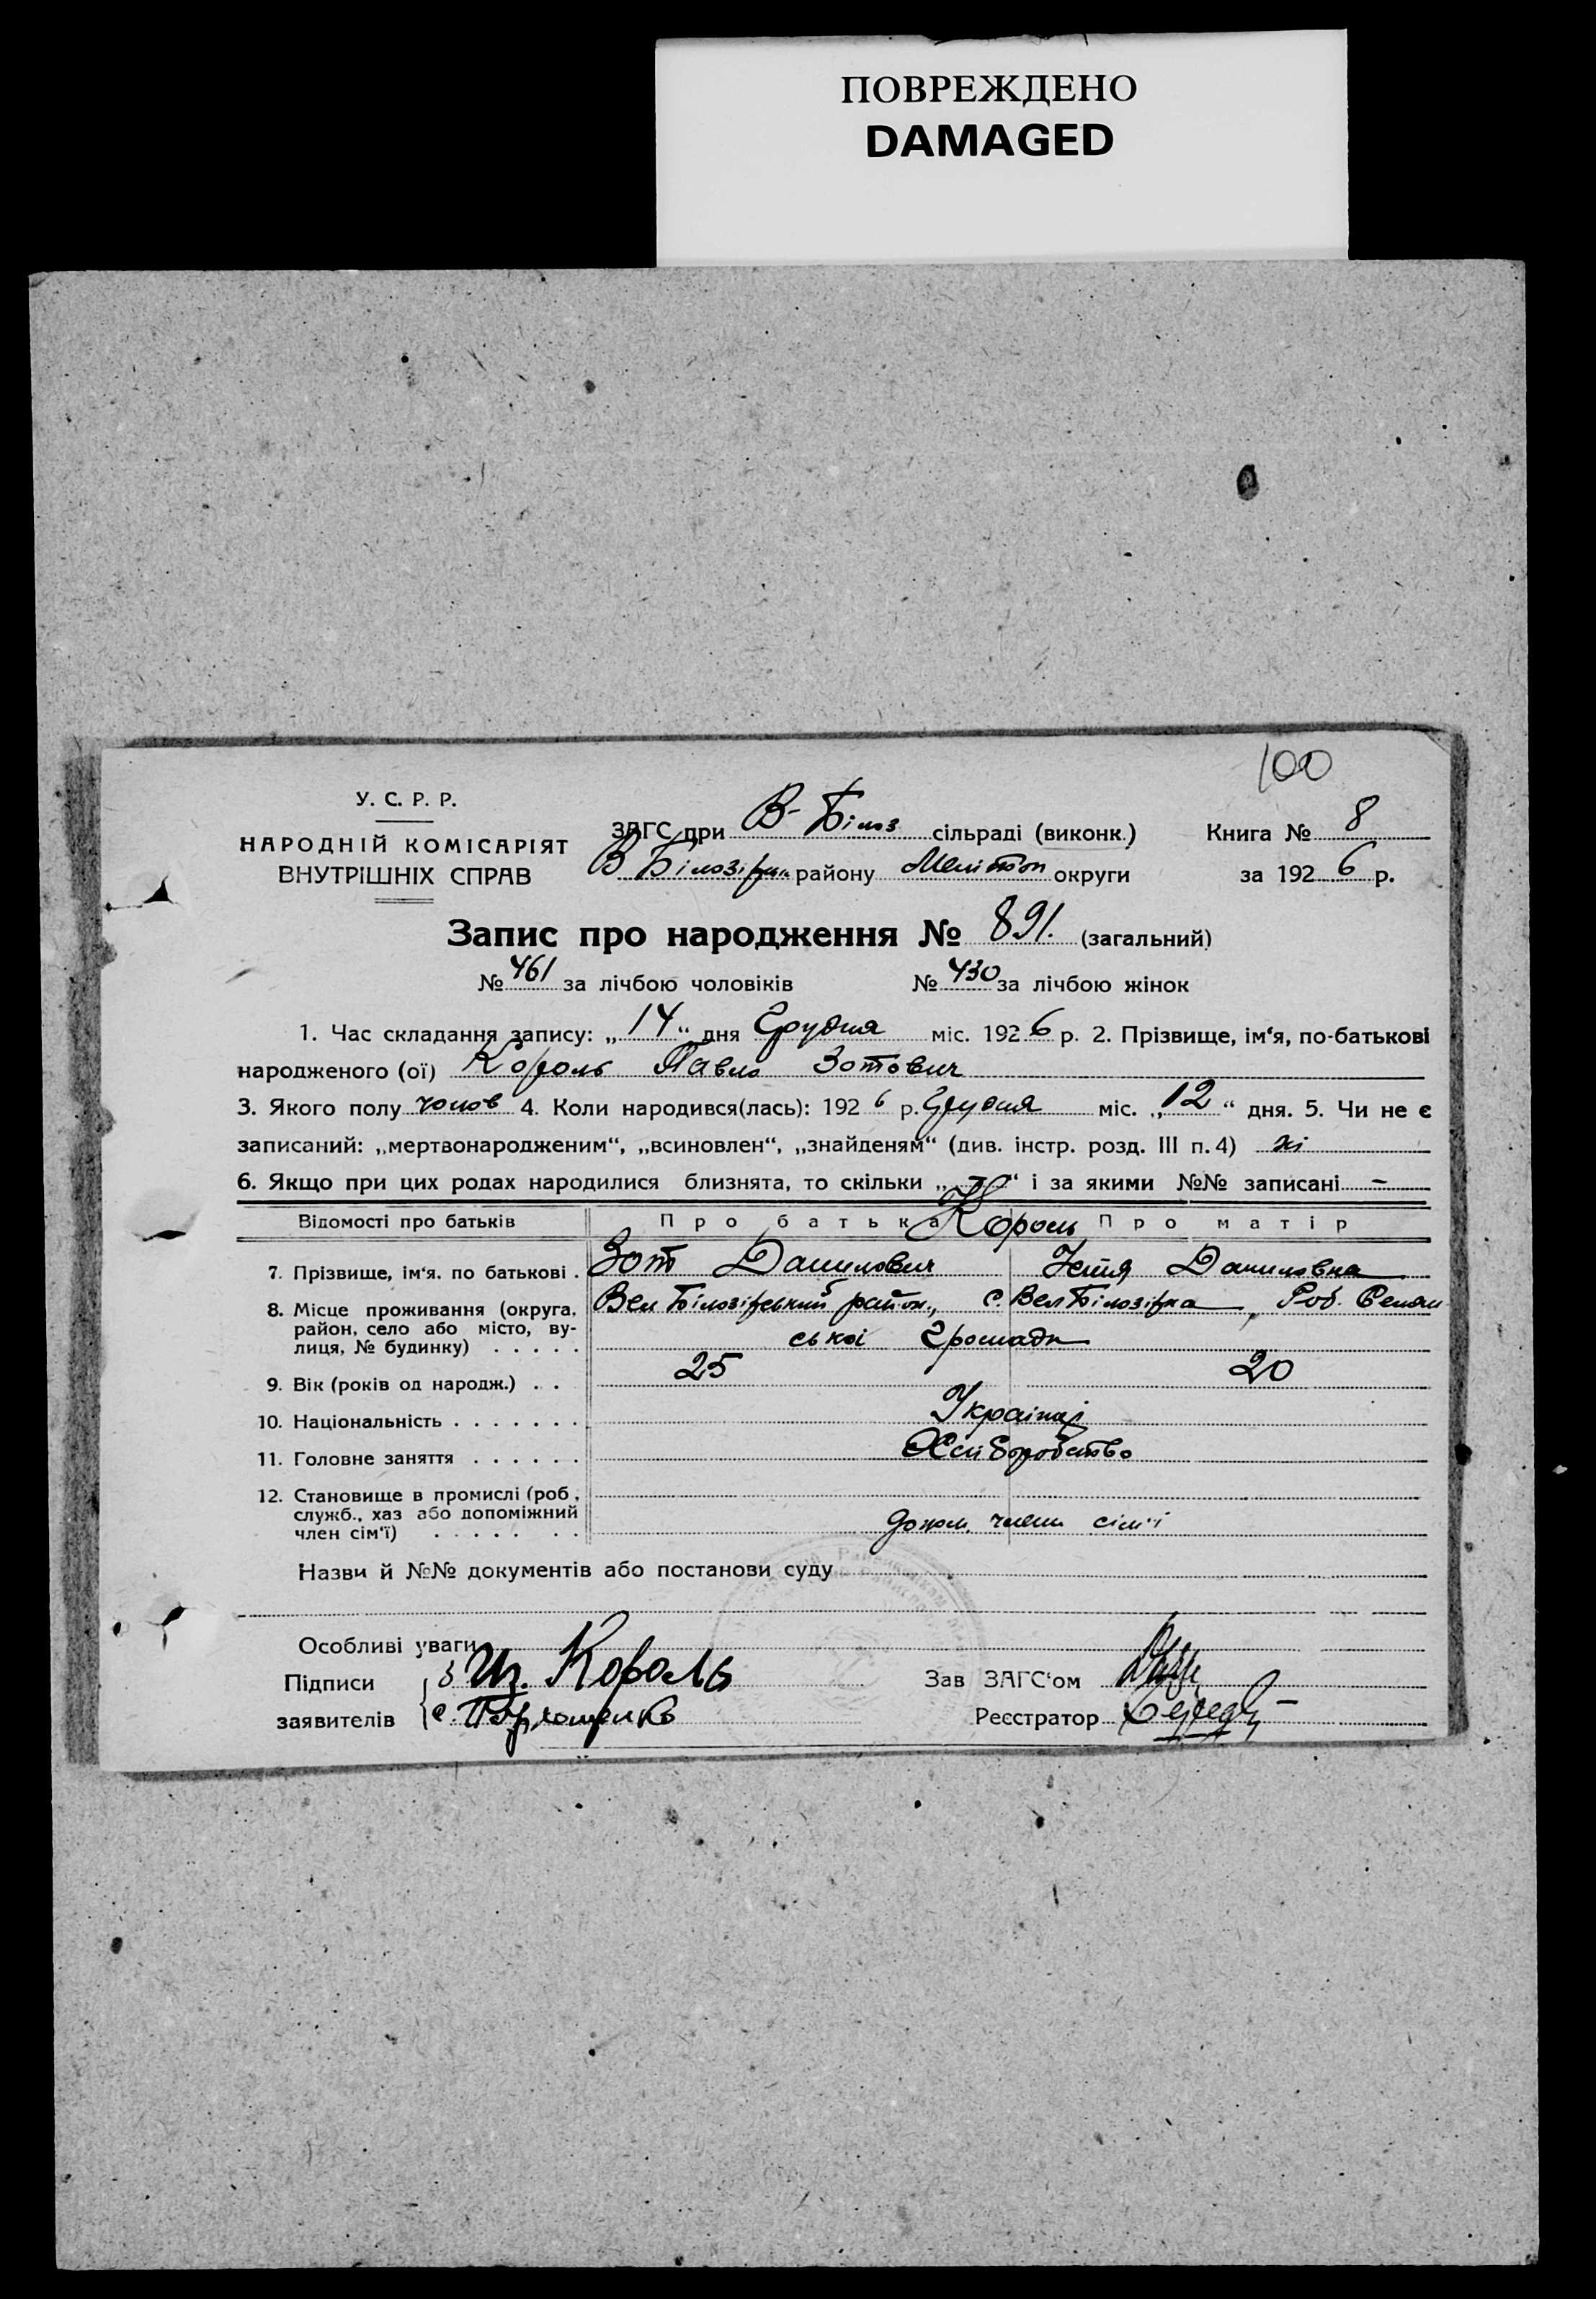 ПОВРЕЖДЕНО
DAMAGED
100
У. С. Р. Р.
НАРОДНІЙ КОМІСАРІЯТ
ВНУТРІШНІХ СПРАВ
ЗАГС при В-Білоз сільраді (виконк.)
В Білозірк району Мелітоп округи
Книга № 8
за 1926 р.
Запис про народження № 891. (загальний)
№ 461 за лічбою чоловіків № 430 за лічбою жінок
1. Час складання запису: „14“ дня Грудня міс. 1926 р. 2. Прізвище, ім‘я, по-батькові
народженого (ої) Король Павло Зотович
3. Якого полу чолов 4. Коли народився(лась): 1926 р. Грудня міс. „12“ дня. 5. Чи не є
записаний: „мертвонародженим“, „всиновлен“, „знайденям“ (див. інстр. розд. III п. 4) ні
6. Якщо при цих родах народилися близнята, то скільки „—“ і за якими №№ записані —
Відомості про батьків Про батька Про матір
Король
7. Прізвище, ім‘я, по батькові . Зот Данилович Устя Даниловна
8. Місце проживання (округа, Вел Білозірський район., с. Вел Білозірка, Роб. Селян
район, село або місто, ву-
лиця, № будинку) . . . . . ської Громади
9. Вік (років од народж.) . . 25 20
10. Національність . . . . . . . Українці
11. Головне заняття . . . . . . Хліборобство
12. Становище в промислі (роб.,
служб., хаз або допоміжний
член сім‘ї) . . . . . . . допом. члени сім'ї
Назви й №№ документів або постанови суду
Особливі уваги
Підписи Король
заявителів
Зав ЗАГС‘ом
Реєстратор